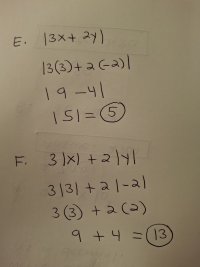 E. |3x + 2y|
|3(3) + 2(-2)|
|9 - 4|
|5| = 5
F. 3|x| + 2|y|
3|3| + 2|-2|
3(3) + 2(2)
9 + 4 = 13